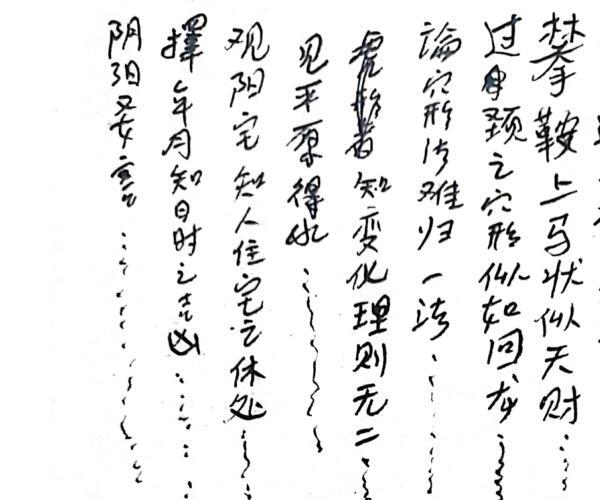 攀鞍上马状似天财
过颈之穴形似如回龙
論穴形法难归一法
知变化理则无二
见平原得水
观阳宅知人住宅之休处
擇年月知日时之吉凶
阴阳